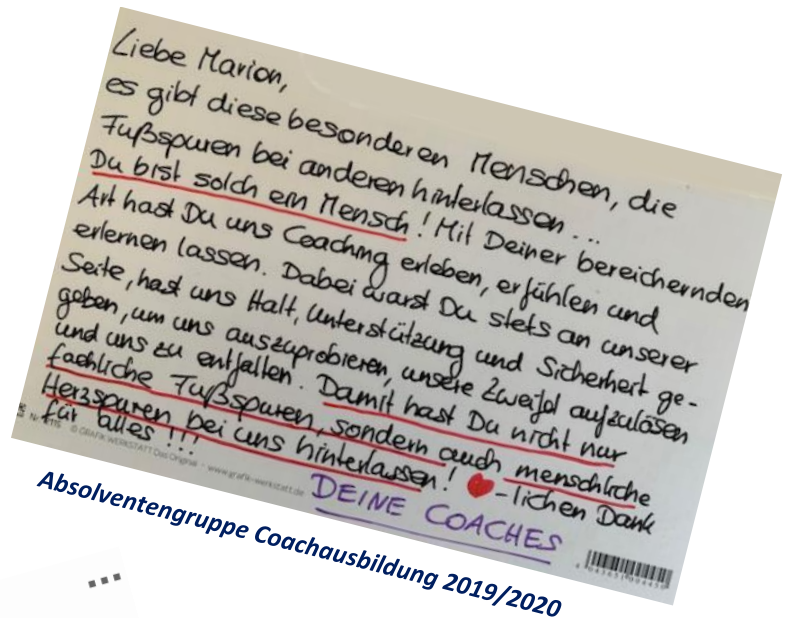 Liebe Marion,
es gibt diese besonderen Menschen, die
Fußspuren bei anderen hinterlassen...
Du bist solch ein Mensch! Mit Deiner bereichernden
Art hast Du uns Coaching erleben, erfühlen und
erlernen lassen. Dabei warst Du stets an unserer
Seite, hast uns Halt, Unterstützung und Sicherheit ge-
geben, um uns auszuprobieren, unsere Zweifel aufzulösen
und uns zu entfalten. Damit hast Du nicht nur
fachliche Fußspuren, sondern auch menschliche
Herzspuren bei uns hinterlassen! ❤-lichen Dank
für alles!!!
DEINE COACHES
© GRAFIK WERKSTATT Das Original · www.grafik-werkstatt.de
Absolventengruppe Coachausbildung 2019/2020
...